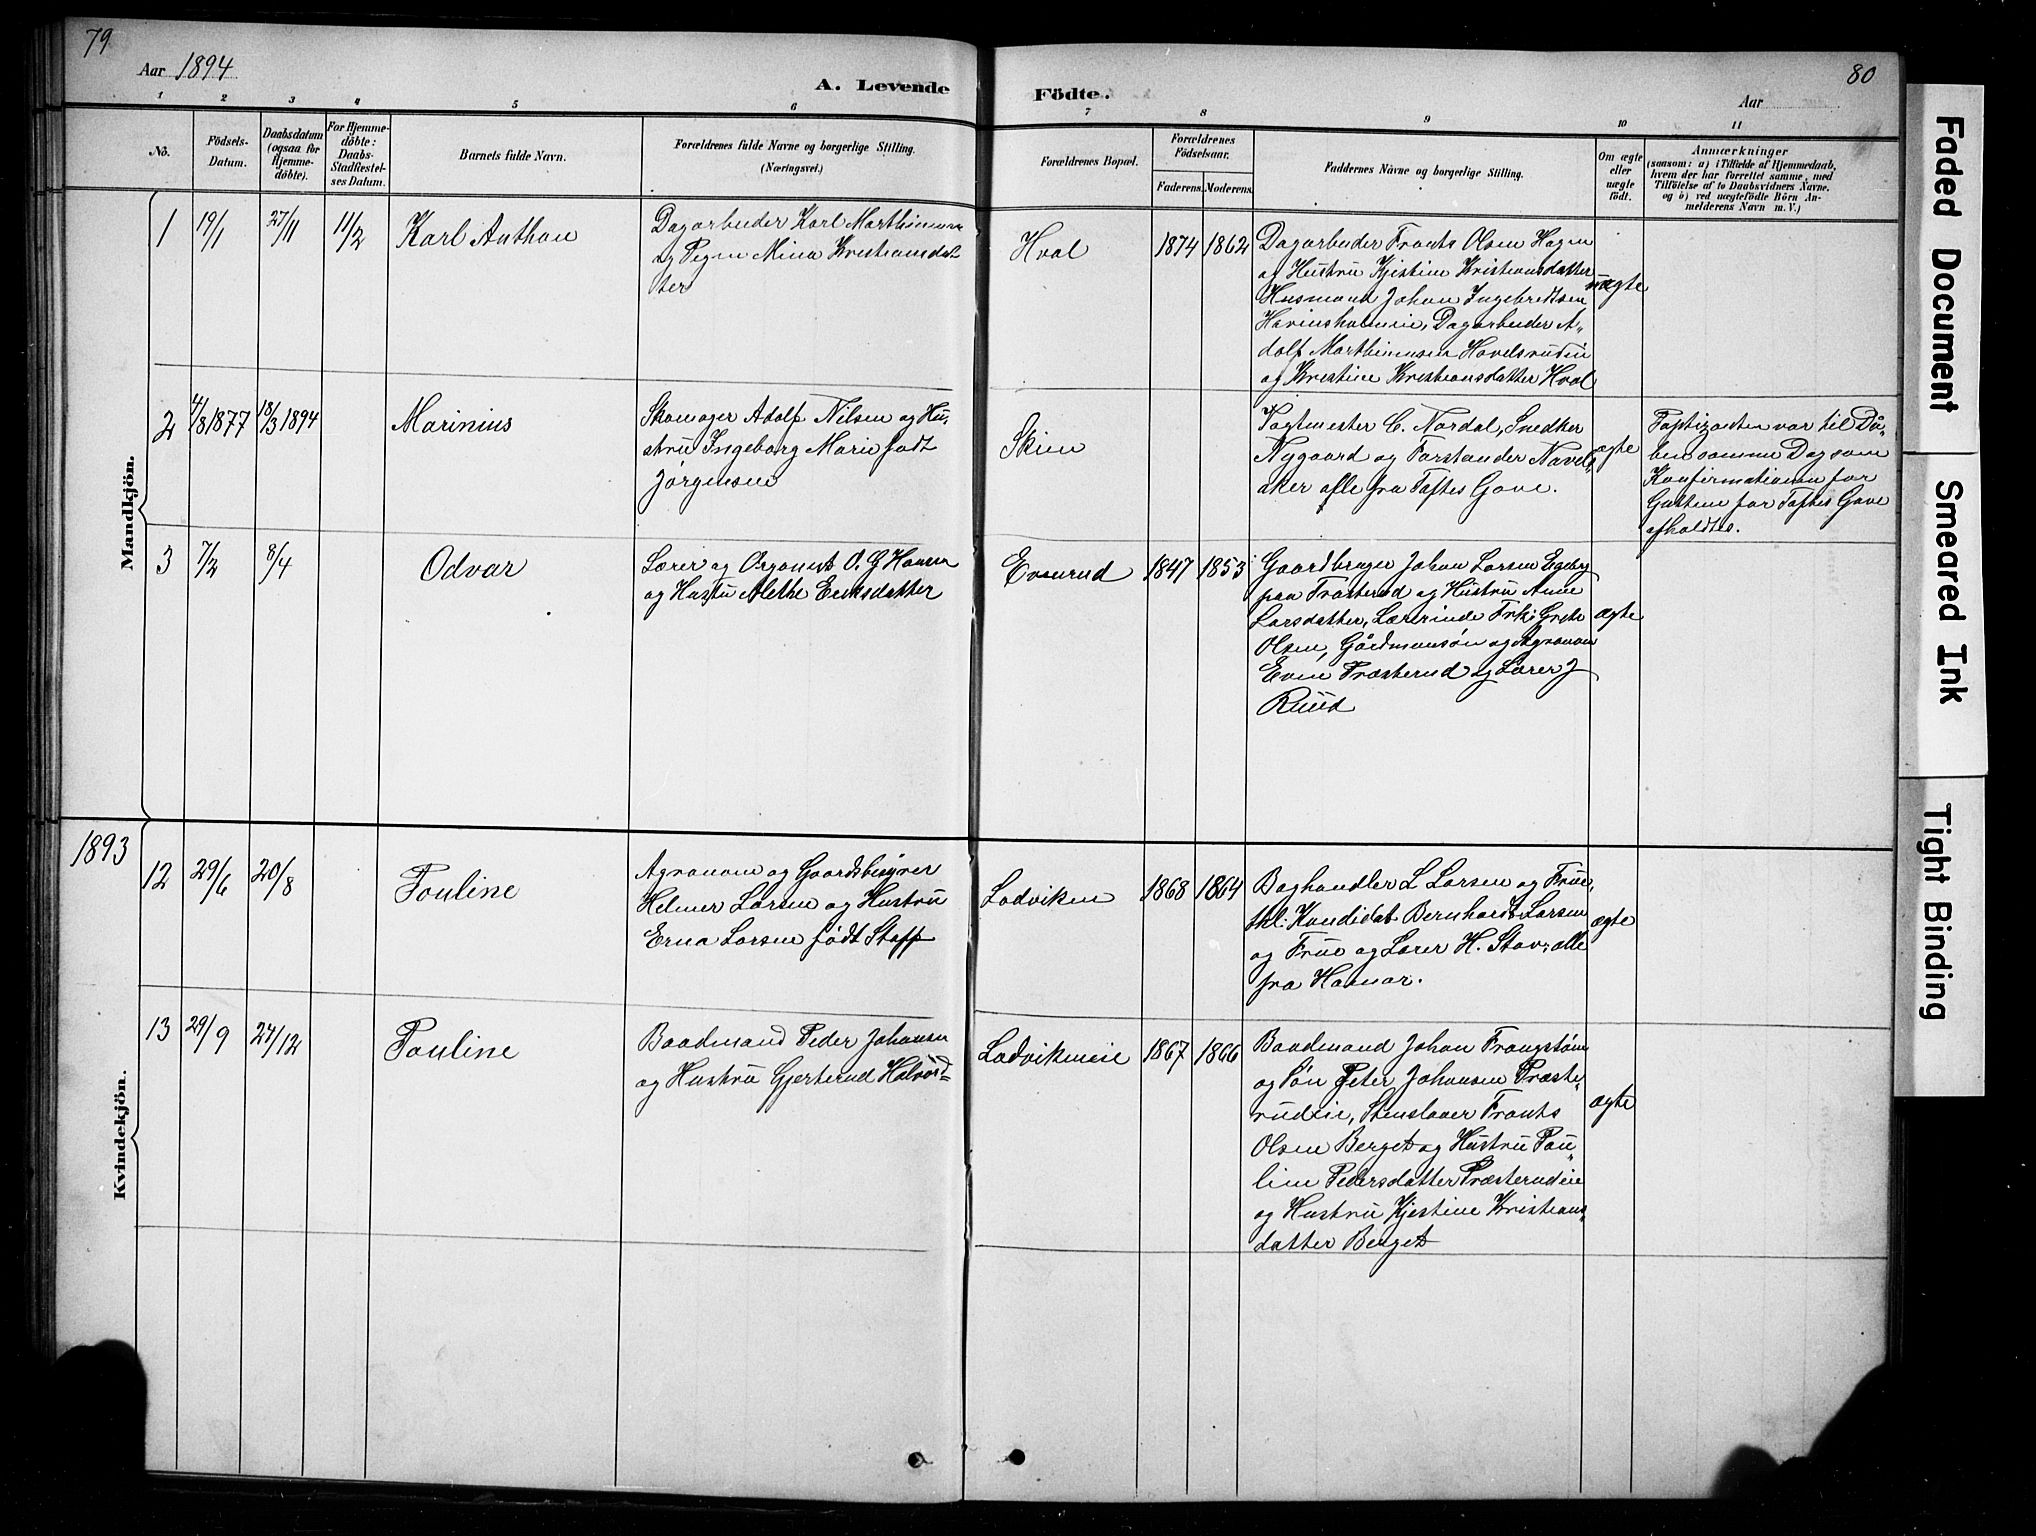 79
Aar 1894
A. Levende
Födte.
Aar
80
1 2 3 4 5 6 7 8 9 10 11
No.
Födsels-
Datum.
Daabsdatum
(ogsaa for
Hjemme-
döbte).
For Hjemme-
döbte:
Daabs-
Stadfæstel-
ses Datum.
Barnets fulde Navn.
Forældrenes fulde Navne og borgerlige Stilling.
(Næringsvei.)
Forældrenes Bopæl.
Forældrenes
Födselsaar.
Faderens. Moderens.
Faddernes Navne og borgerlige Stilling.
Om ægte
eller
uægte
födt.
Anmærkninger
(saasom: a) i Tilfælde af Hjemmedaab,
hvem der har forrettet samme, med
Tilföielse af to Daabsvidners Navne.
og b) ved uægtefödte Börn An-
melderens Navn m. V.)
Mandkjön.
1
19/1
27/11
11/2
Karl Anthon
Dagarbeider Karl Marthinsen
og Pigen Mina Kristiansdat
ter
Hval
1874 1862
Dagarbeider Frants Olsen Hagen
og Hustru Kjestine Kristiansdatter
Husmand Johan Ingebretsen
Dagarbeider A-
dolf Marthinusen
og Kristine Kristiansdatter Hval
uægte
2
4/8 1877
18/3 1894
Marinius
Skomager Adolf Nilsen og Hu-
stru Ingeborg Marie født
Jørgensen
Skien
Fogtmester C. Nordal, Snedker
Nygaard og Forstander Navel-
aker alle fra Toftes Gave.
ægte
var til Då-
ben samme Dag som
Konfirmationen for
Guttene for Toftes Gave
afholdtes.
3
7/2
8/4
Odvar
Lærer og Organist O. G Hansen
og Hustru Alethe Eriksdatter
Evenrud
1847 1853
Gaardbruger Johan Larsen Egeby
paa Fræsterud og Hustru Anne
Larsdatter, Lærerinde Frk: Grete
Olsen, Gårdmansøn og Agronom
Even Præsterud og Lærer J
Ruud
ægte
1893
Kvindekjön.
12
29/6
20/8
Pouline
Agronom og Gaardsbestyrer
Helmer Larsen og Hustru
Erna Larsen født Staff
Ladviken
1868 1864
Boghandler L Larsen og Frue,
thl: Kandidat Bernhardt Larsen
og Frue og Lærer H. Stav, alle
fra Hamar.
ægte
13
29/9
24/12
Pouline
Baadmand Peder Johansen
og Hustru Gjerterud Halvord-
Ladvikeneie
1867 1866
Baadmand Johan Frangstøen
og Søn Peter Johansen Præste-
rudeie, Frants
Olsen Berget og Hustru Pau-
line Pedersdatter Præsterudeie
og Hustru Kjestine Kristians-
datter Berget
ægte
Faded Document
Smeared Ink
Tight Binding